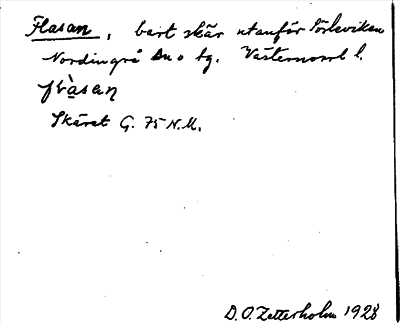 Flasan, bart skär utanför Sörleviken
Nordingrå sn o tg. Västernorrl l.
flàsaɳ
Skäret G. 75 N.M.
D.O. Zetterholm 1928